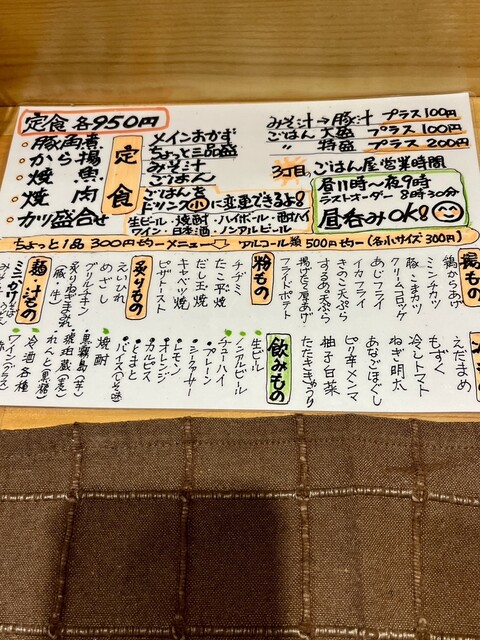 定食 各950円
・豚角煮
・から揚
・焼魚
・焼肉
・カツ盛合せ
定食
メインおかず
ちょっと三品盛
みそ汁
ごはん
ごはんを
ドリンク小に変更できるよ!
生ビール・焼酎・ハイボール・酎ハイ
ワイン・日本酒・ノンアルビール
みそ汁→豚汁 プラス100円
ごはん 大盛 プラス100円
〃 特盛 プラス200円
3丁目のごはん屋営業時間
昼11時～夜9時
ラストオーダー 8時30分
昼呑みOK!
ちょっと1品300円せウーメニュー アルコール類500円せウー(各小サイズ300円)
揚もの
鶏からあげ
ミンチカツ
クリームコロッケ
豚・こまカツ
あじフライ
イカフライ
きのこ天ぷら
するあっ天ぷら
揚げたて厚あげ
フライドポテト
粉もの
チヂミ
たこ平焼
だし玉焼
キャベツ焼
ピザトースト
炙りもの
えいひれ
めざし
グリルチキン
炙りねぎまみれ
(豚・牛)
麺・汁もの
ミニかけうどん
えだまめ
もずく
冷しトマト
ねぎ明太
あなごほぐし
ピリ辛メンマ
柚子白菜
たたききゅうり
飲みもの
生ビール
ノンアルビール
チューハイ
・プレーン
・シークァサー
・レモン
・オレンジ
・カルピス
・とまと
・バイス(しそ味)
焼酎
・黒霧島(芋)
・琥珀蔵(麦)
・れんと(黒糖)
冷酒各種
ワイン(グラス)